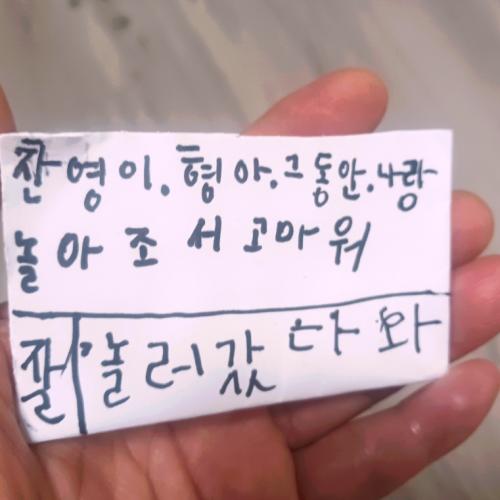 찬영이. 형아. 그동안. 나랑
놀아조서 고마워
잘 놀러갔다와